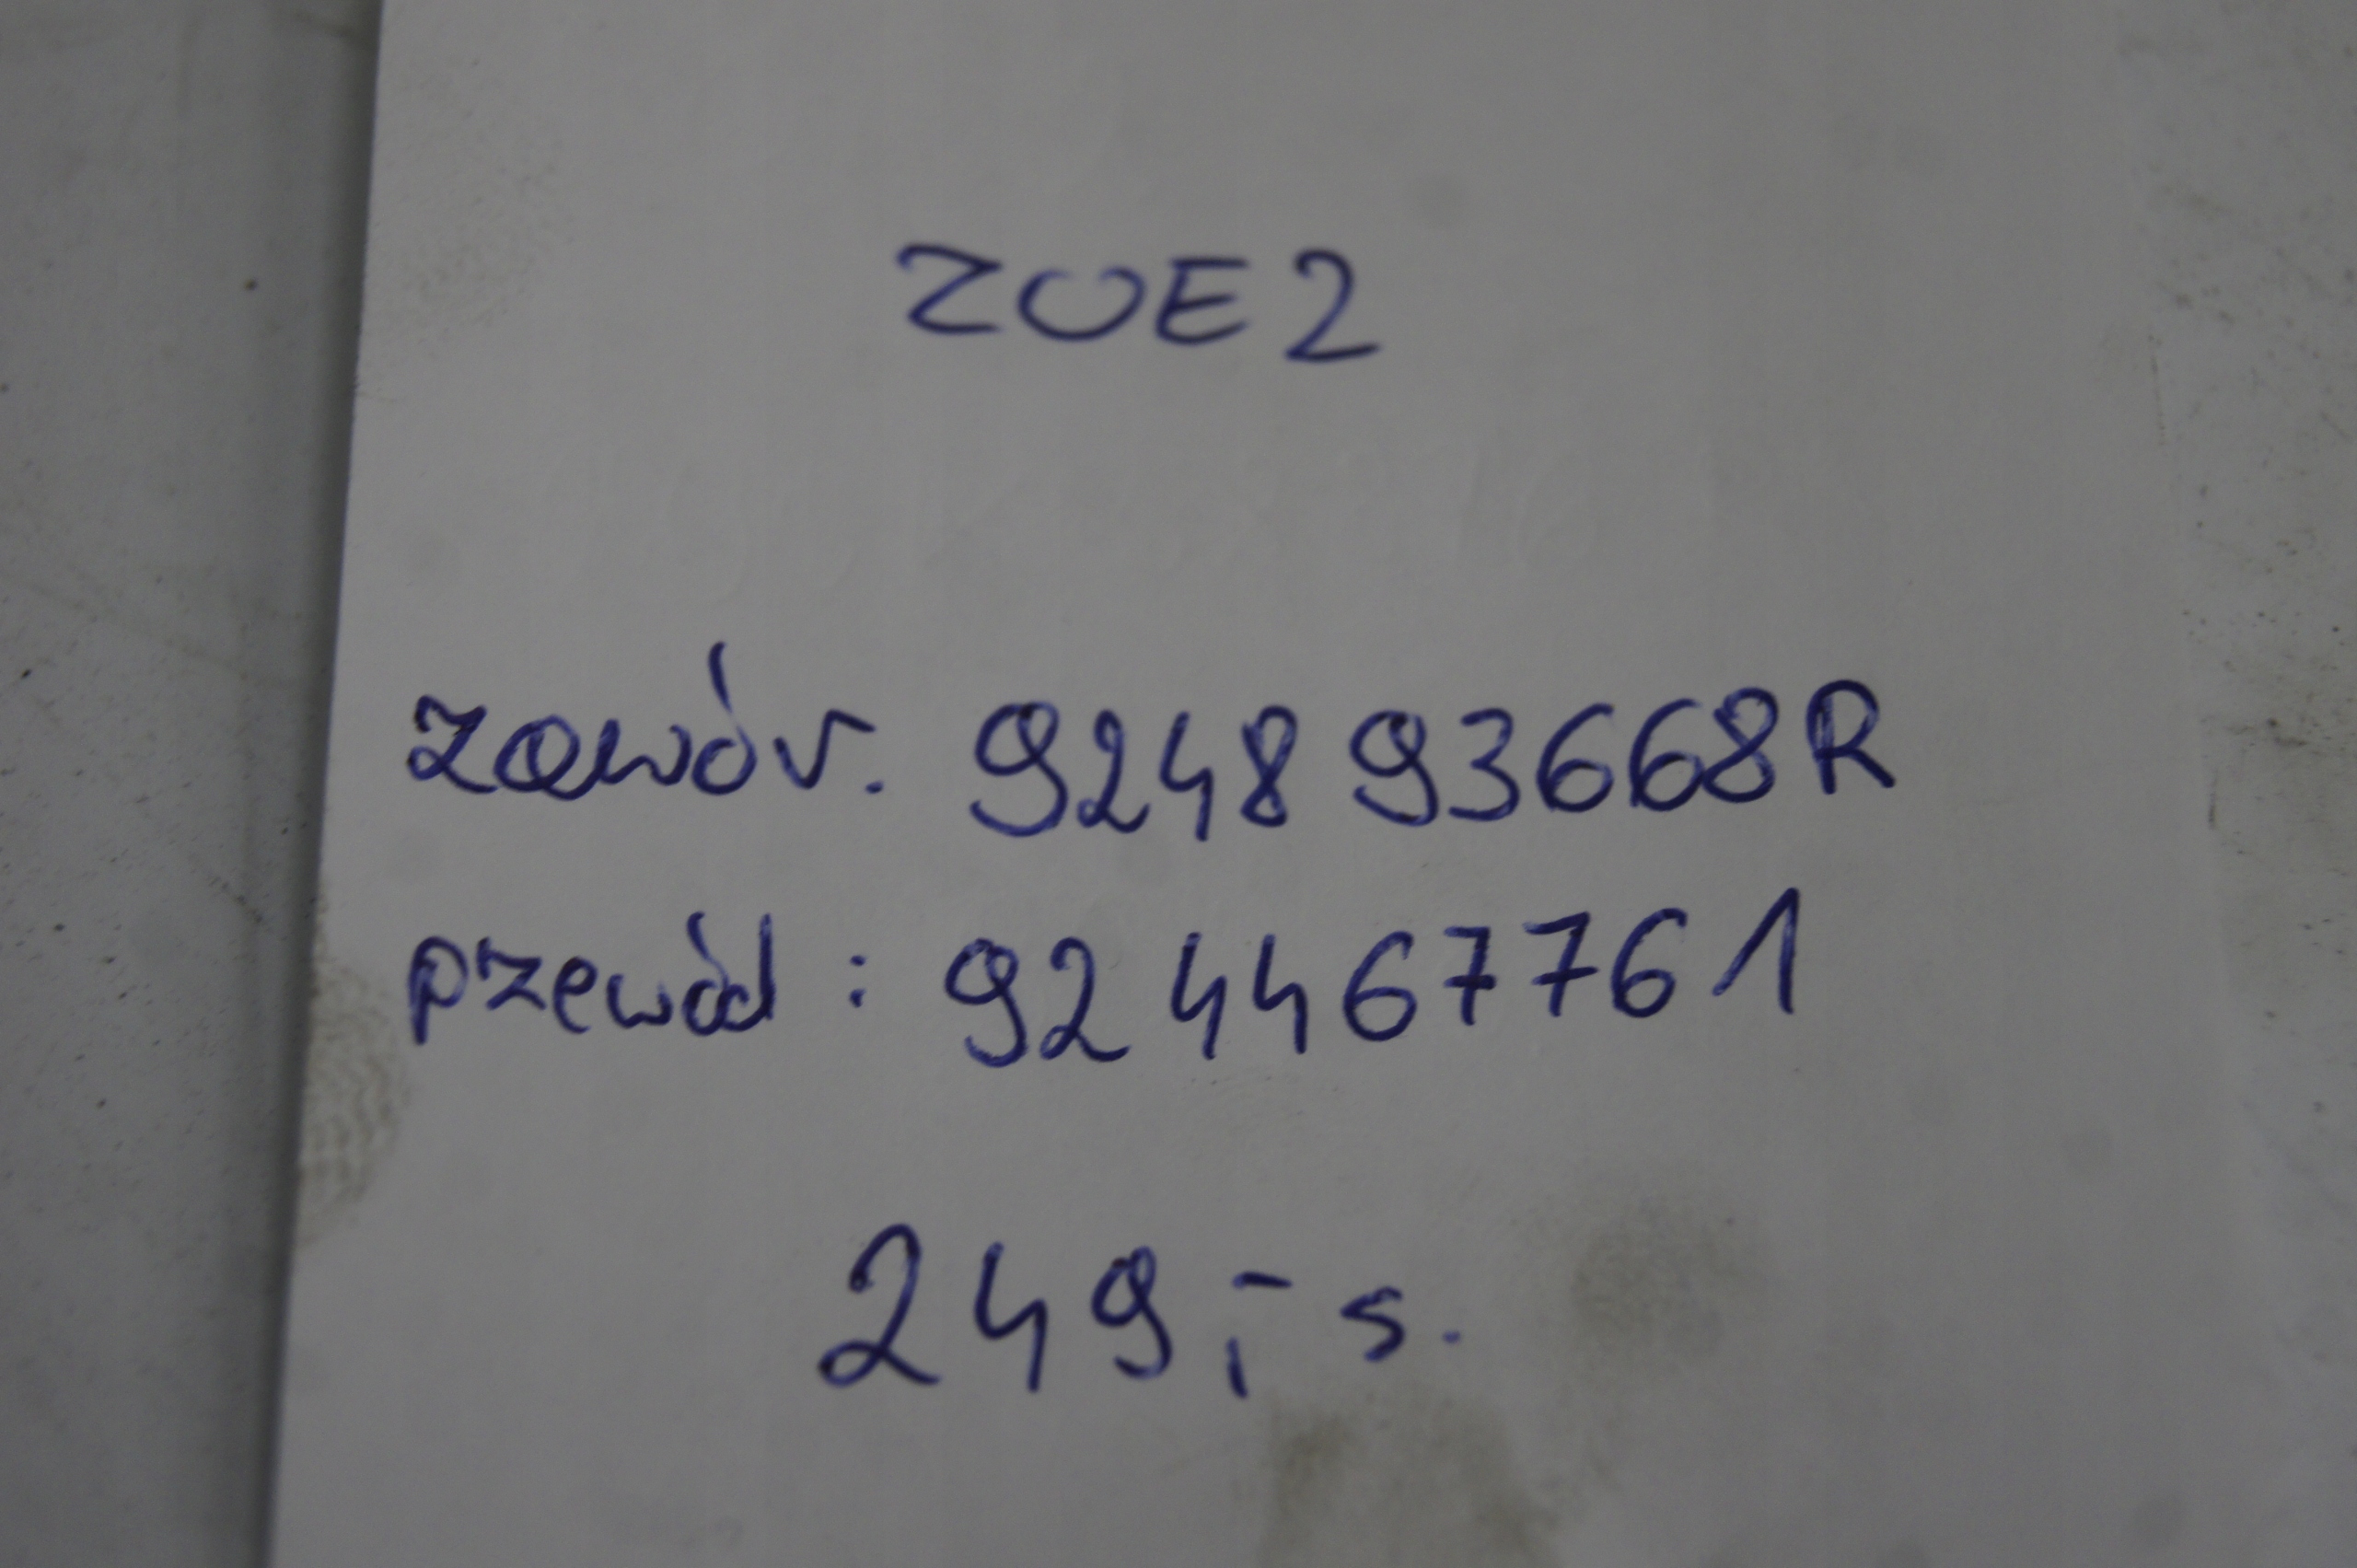 ZOE 2
zawór. 924893668R
przewód : 924467761
249,- s.